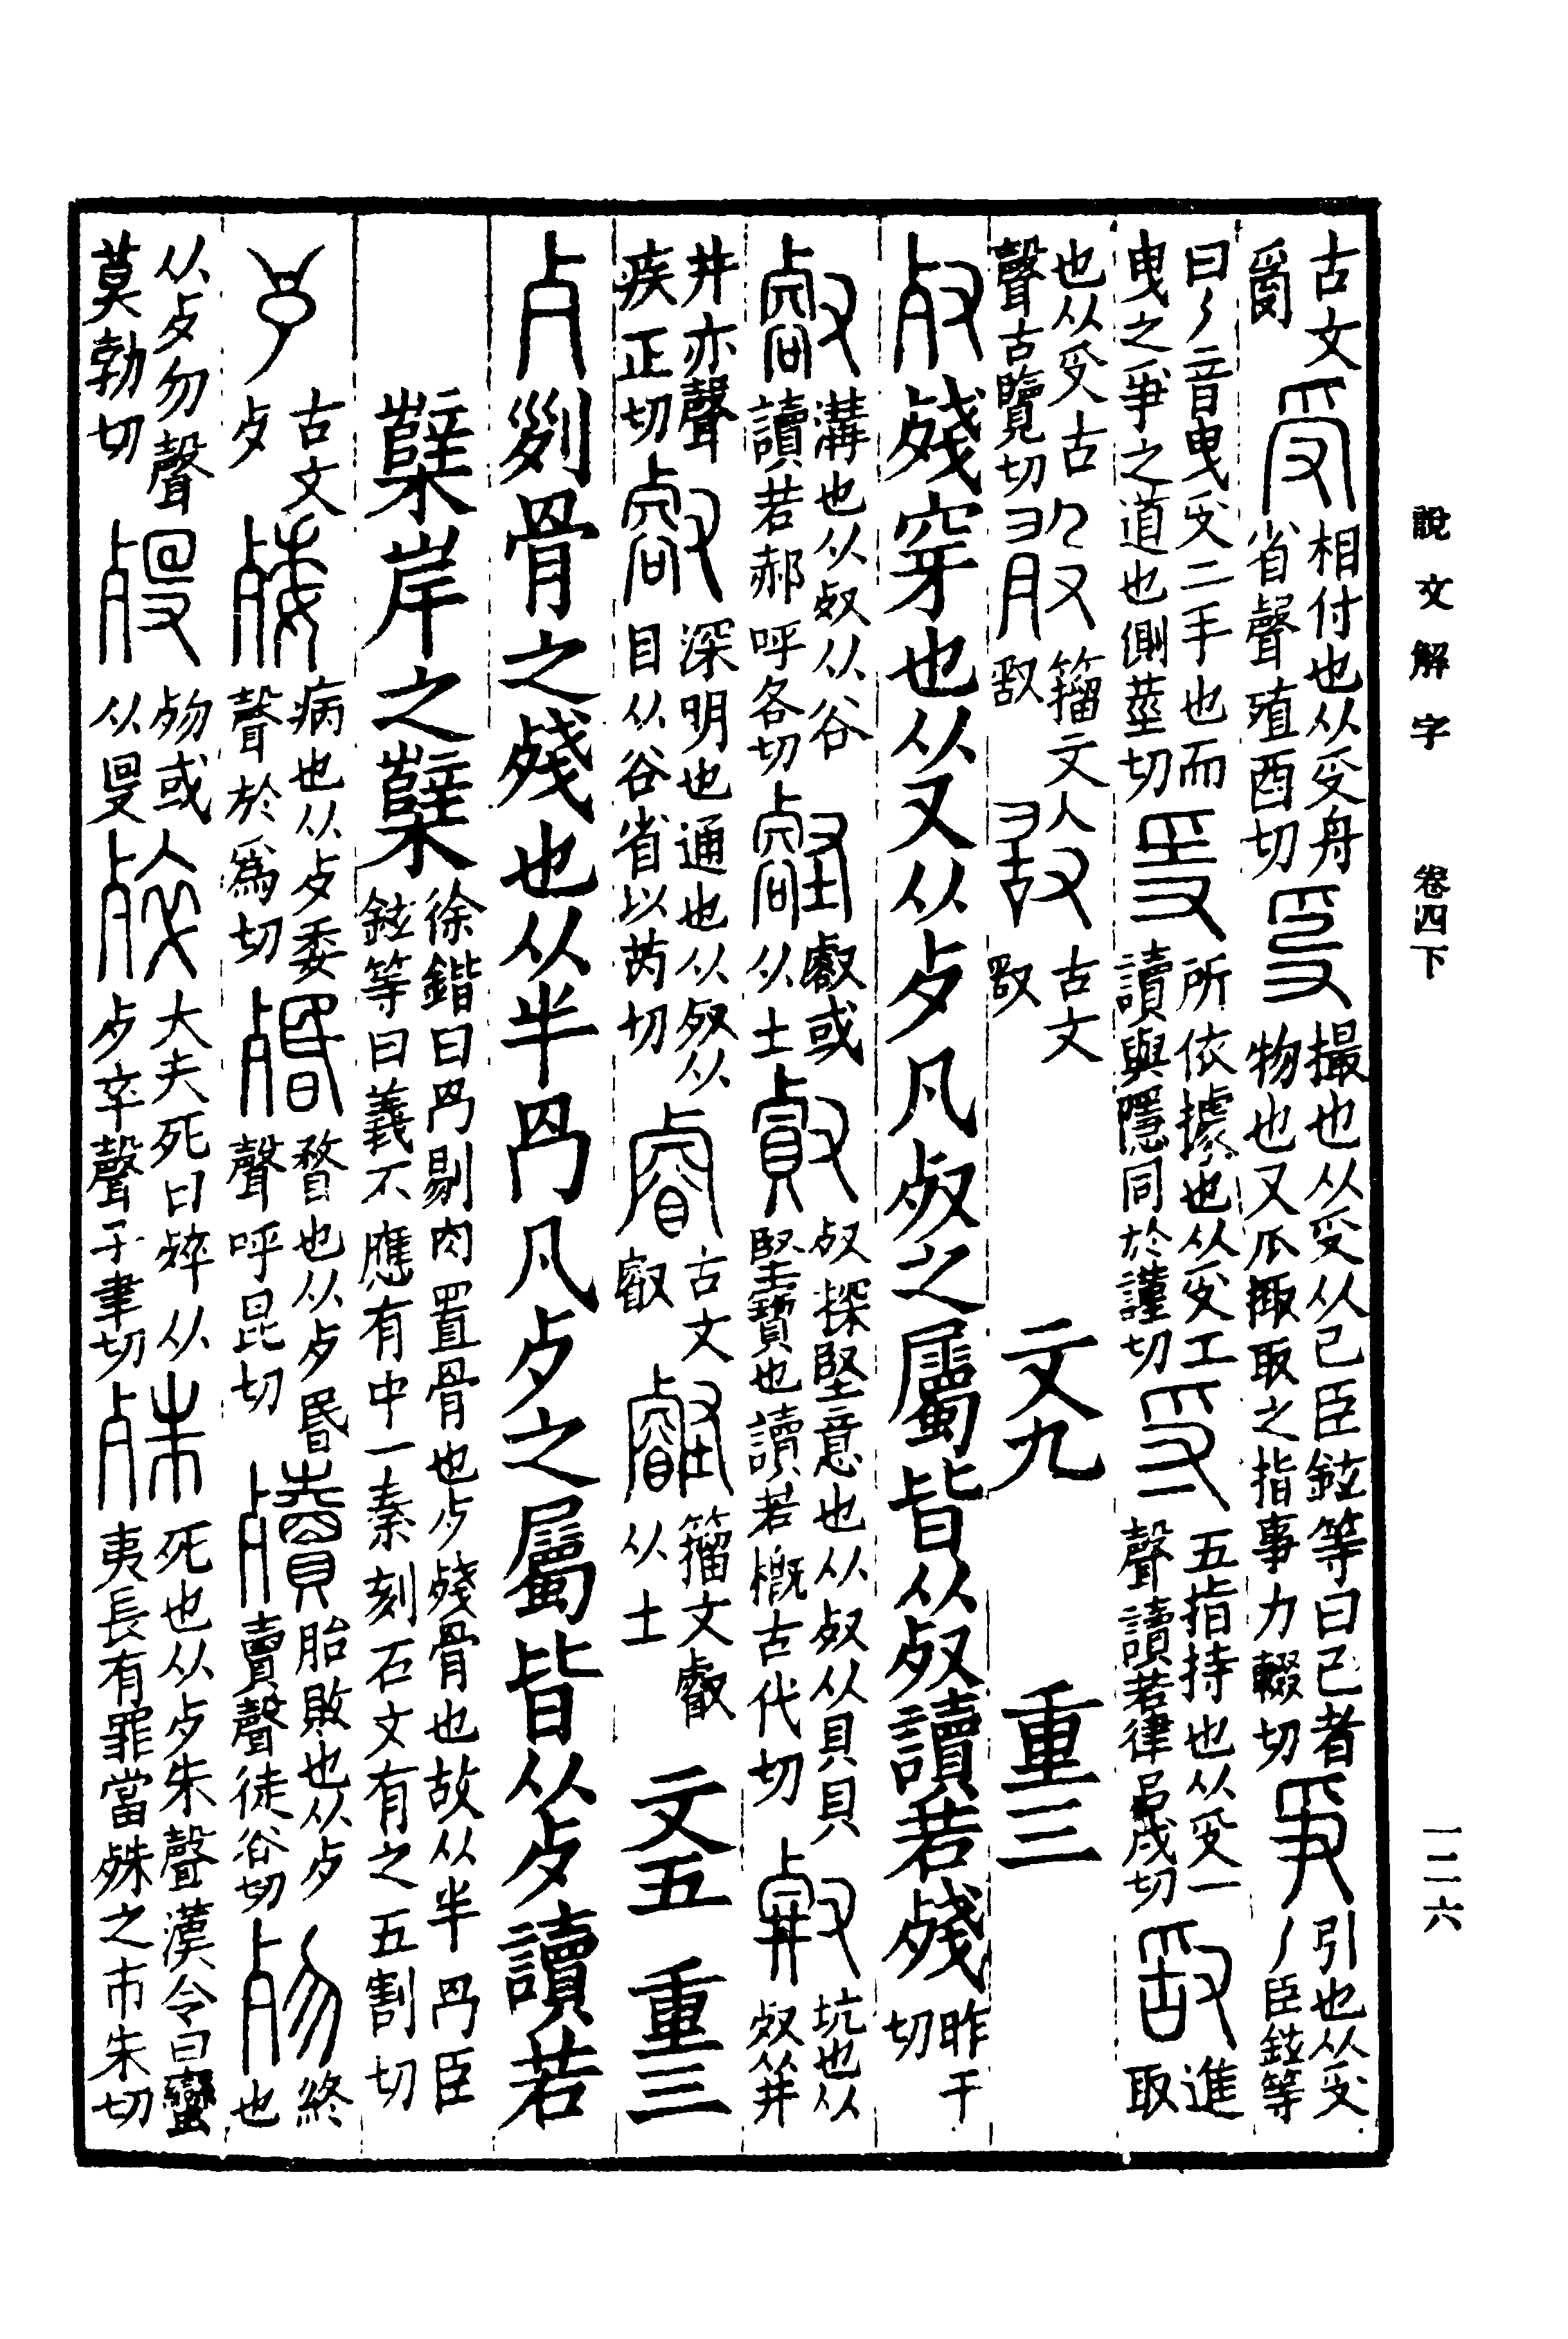 說文解字　卷四下　一二六
古文𤔔　受　相付也从𠬪舟省聲殖酉切　𠭇　撮也从𠬪从己臣鉉等曰己者物也又爪掫取之指事力輟切　爭　引也从𠬪丿臣鉉等
曰丿音曳𠬪二手也而曳之爭之道也側莖切　𤔌　所依據也从𠬪工讀與隱同於謹切　寽　五指持也从𠬪一聲讀若律呂戌切　𠭖　進取
也从𠬪古聲古覽切　籒文𠭖　古文𠭖　文九　重三
𣦼　殘穿也从又从歺凡𣦼之屬皆从𣦼讀若殘昨干切
𧯆　溝也从𣦼从谷讀若郝呼各切　𡑣　𧯆或从土　𧷎　𣦼探堅意也从𣦼从貝貝堅寶也讀若概古代切　𡨄　坑也从𣦼从井
井亦聲疾正切　叡　深明也通也从𣦼从目从谷省以芮切　睿　古文叡　壡　籒文叡从土　文五　重三
歺　𠛱骨之殘也从半冎凡歺之屬皆从歺讀若
櫱岸之櫱徐鍇曰冎剔肉置骨也歺殘骨也故从半冎臣鉉等曰義不應有中一秦刻石文有之五割切
𡰮　古文歺　㱱　病也从歺委聲於爲切　殙　瞀也从歺昬聲呼昆切　殰　胎敗也从歺𧶠聲徒谷切　歾　終也
从歺勿聲莫勃切　歿　歾或从𠬛　㱖　大夫死曰㱖从歺卒聲子聿切　殊　死也从歺朱聲漢令曰蠻夷長有罪當殊之市朱切